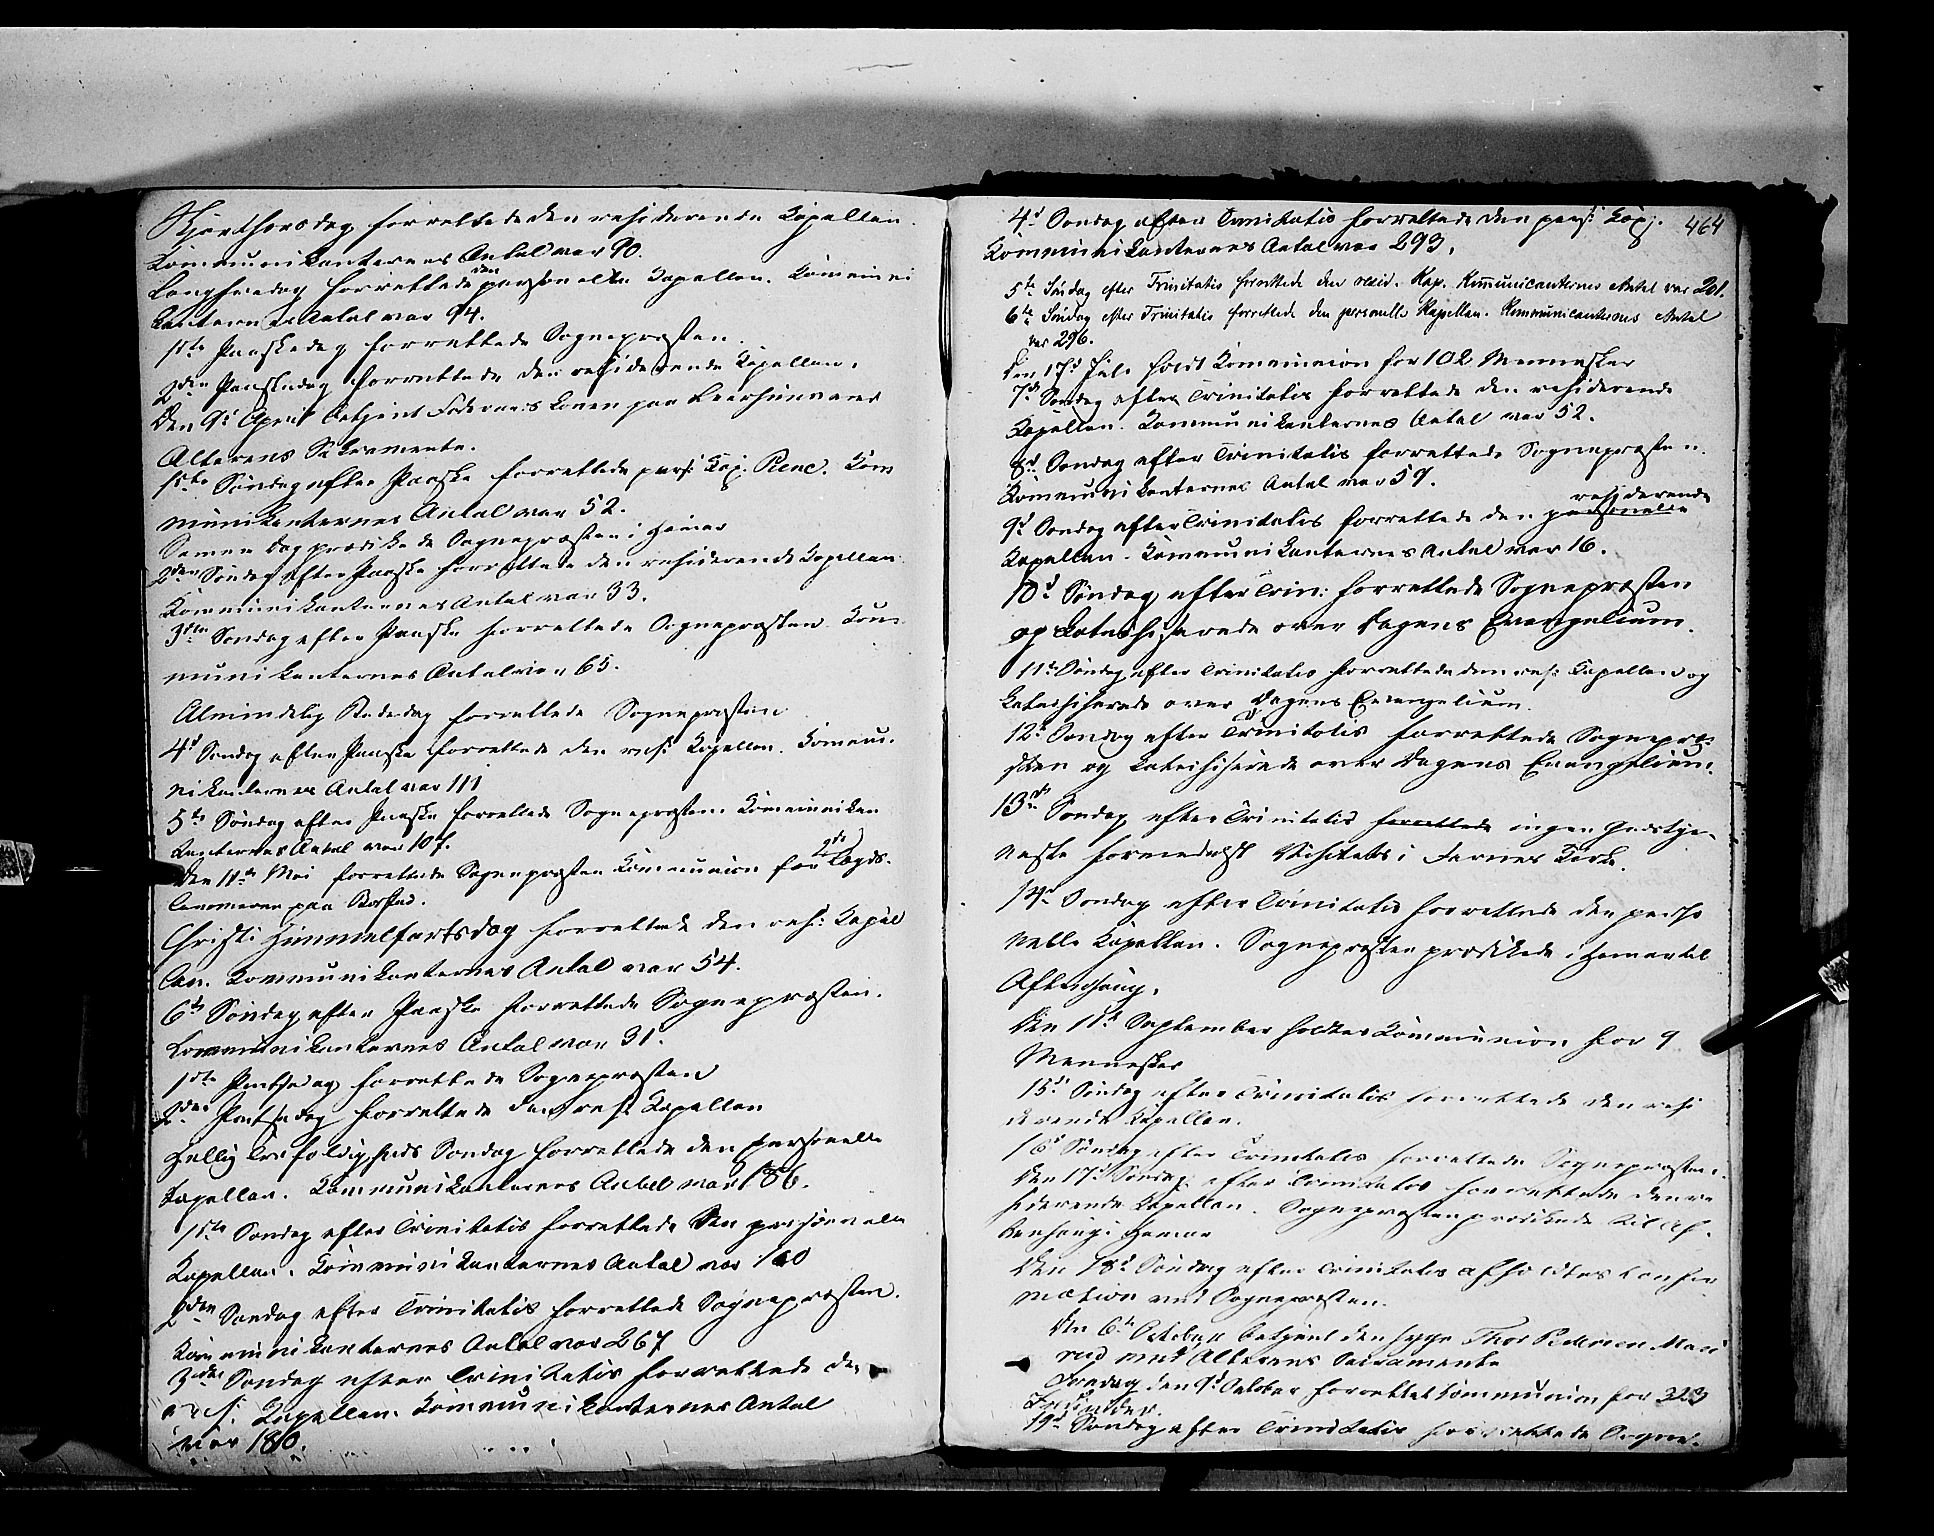 Skjærthorsdag forrettede den residerende Capellan.
Kommunikanternes Antal var 90.
Langfredag forrettede den personelle Capellan. Kommuni
kanternes Antal var 94.
1ste Paaskedag forrettede Sognepræsten.
2den Paaskedag forrettede den residerende Capellan.
Den 9d April betjent Konen paa
Alterens Sakramente.
1ste Søndag efter Paaske forrettede pers: Cap. Kom
munikanternes Antal var 52.
Samme Dag prædikede Sognepræsten i Hamar
2den Søndag efter Paaske forrettede den residerende Capellan
Kommunikanternes Antal var 33.
3die Søndag efter Paaske forrettede Sognepræsten. Kom
munikanternes Antal var 65.
Almindelig Bededag forrettede Sognepræsten
4d Søndag efter Paaske forrettede den resi: Kapellan. Kommu.
nikanternes Antal var 111
5te Søndag efter Paaske forrettede Sognepræsten Kommuniken
kanternes Antal var 107.
Den 11te Mai forrettede Sognepræsten Kommunion for Lægds-
lemmerne paa
Christi Himmelfartsdag forrettede den res: Kapel
lan. Kommunikanternes Antal var 54.
6te Søndag efter Paaske forrettede Sognepræsten.
Kommunikanternes Antal var 31.
1ste Pintsedag forrettede Sognepræsten
2den Pintsedag forrettede den resi: Kapellan
Hellig Trefoldigheds Søndag forrettede den personelle
Kapellan. Kommunikanternes Antal var 186.
1ste Søndag efter Trinitatis forrettede den personelle
Kapellan. Kommunikanternes Antal var 160
2den Søndag efter Trinitatis forrettede Sognepræsten.
Kommunikanternes Antal var 267
3die Søndag efter Trinitatis forrettede den
resi. Kapellan. Kommunikanternes Antal
var 180.
464
4d Søndag efter Trinitatis forrettede den pers: Kap:
Kommunikanternes Antal var 293.
5te Søndag efter Trinitatis forrettede den resid. Kap. Kommunicanternes Antal var 201.
6te Søndag efter Trinitatis forrettede den personelle Kapellan. Kommunicanternes Antal
var 296.
Den 17d Juli holdt Kommunion for 102 Mennesker
7d Søndag efter Trinitatis forrettede den residerende
Kapellan. Kommunikanternes Antal var 52.
8d Søndag efter Trinitatis forrettede Sognepræsten.
Kommunikanternes Antal var 59.
residerende
9d Søndag efter Trinitatis forrettede den personelle
Kapellan. Kommunikanternes Antal var 16.
10d Søndag efter Trin: forrettede Sognepræsten
og katechiserede over Dagens Evangelium.
11te Søndag efter Trinitatis forrettede den res: Capellan og
katechiserede over Dagens Evangelium.
12d Søndag efter Trinitatis forrettede Sognepræ-
sten og katechiserede over Dagens Evangelium.
13de Søndag efter Trinitatis forrettede ingen Gudstje-
neste formedelst Visitats i Furnes Kirke.
14d Søndag efter Trinitatis forrettede den perso
nelle Kapellan. Sognepræsten prædikede i Hamar til
Aftensang.
Den 11te September holdtes Kommunion for 9
Mennesker
15d Søndag efter Trinitatis forrettede den resi
derende Kapellan.
16d Søndag efter Trinitatis forrettede Sognepræsten.
Den 17d Søndag efter Trinitatis forrettede den re
siderende Kapellan. Sognepræsten prædikede til Af-
tensang i Hamar
Den 18d Søndag efter Trinitatis afholdtes Confir
mation ved Sognepræsten.
Den 6te October betjent den syge Thor Pedersen
rud med Alterens Sacramente
Fredag den 9d October forrettet Kommunion for 323
19d Søndag efter Trinitatis forrettede Sogne-